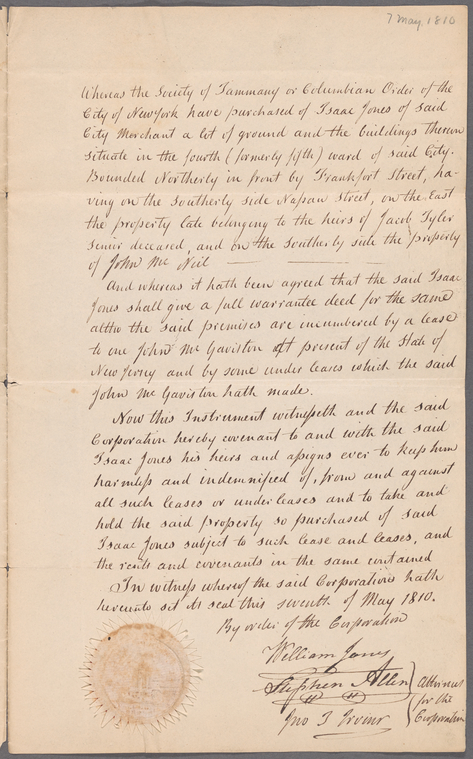 7 May, 1810
Whereas the Society of Tammany or Columbian Order of the
City of New York have purchased of Isaac Jones of said
City Merchant a lot of ground and the buildings thereon
situate in the fourth (formerly fifth) ward of said City.
Bounded Northerly in front by Frankfort Street, ha-
ving on the southerly side Nassau Street, on the East
the property late belonging to the heirs of Jacob Tyler
Senior deceased, and on the Southerly side the property
of John Mc Neil
And whereas it hath been agreed that the said Isaac
Jones shall give a full warrantee deed for the same
altho the said premises are incumbered by a lease
to one John Mc Gaviston at present of the State of
New Jersey and by some under leases which the said
John Mc Gaviston hath made.
Now this Instrument witnesseth and the said
Corporation hereby covenant to and with the said
Isaac Jones his heirs and assigns ever to keep him
harmless and indemnified of, from and against
all such leases or underleases and to take and
hold the said property so purchased of said
Isaac Jones subject to such lease and leases, and
the rents and covenants in the same contained
In witness whereof the said Corporations hath
hereunto set its seal this seventh of May 1810.
By order of the Corporation
William Jones
Stephen Allen
Jno T
Attornies
for the
Corporation